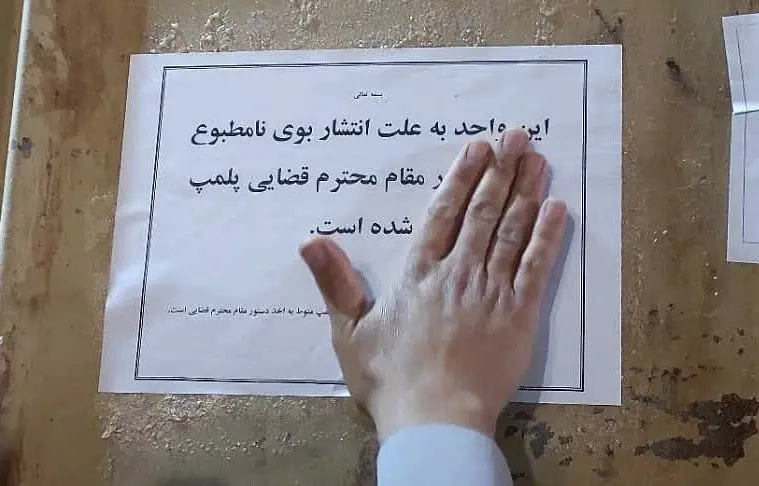 بسمه تعالی
این واحد به علت انتشار بوی نامطبوع
ر مقام محترم قضایی پلمپ
شده است.
منوط به اخذ دستور مقام محترم قضایی است.